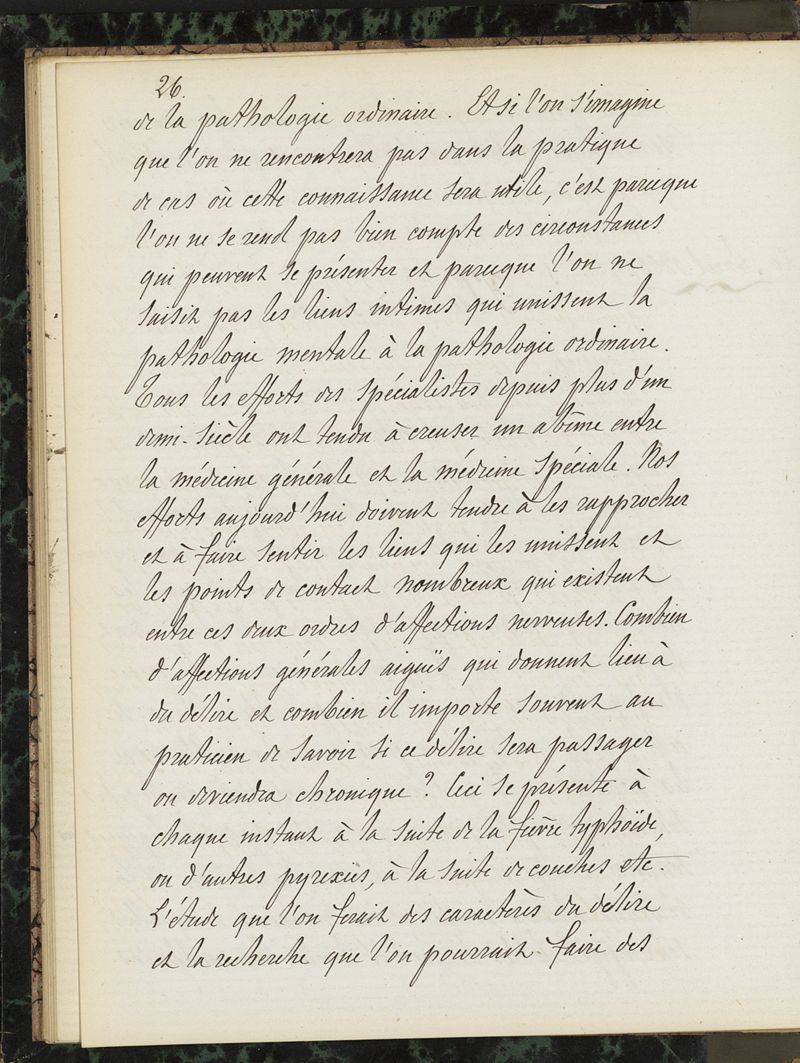 26.
de la pathologie ordinaire. Et si l'on s'imagine
que l'on ne rencontrera pas dans la pratique
de cas où cette connaissance sera utile, c'est parceque
l'on ne se rend pas bien compte des circonstances
qui peuvent se présenter et parceque l'on ne
saisit pas les liens intimes qui unissent la
pathologie mentale à la pathologie ordinaire.
Tous les efforts des spécialistes depuis plus d'un
demi-siècle ont tendu à creuser un abîme entre
la médecine générale et la médecine spéciale. Nos
efforts aujourd'hui doivent tendre à les rapprocher
et à faire sentir les liens qui les unissent et
les points de contact nombreux qui existent
entre ces deux ordres d'affections nerveuses. Combien
d'affections générales aigües qui donnent lieu à
du délire et combien il importe souvent au
praticien de savoir si ce délire sera passager
ou deviendra chronique? Ceci se présente à
chaque instant à la suite de la fièvre typhoïde,
ou d'autres pyrexies, à la suite de couches etc.
L'étude que l'on ferait des caractères du délire
et la recherche que l'on pourrait faire des